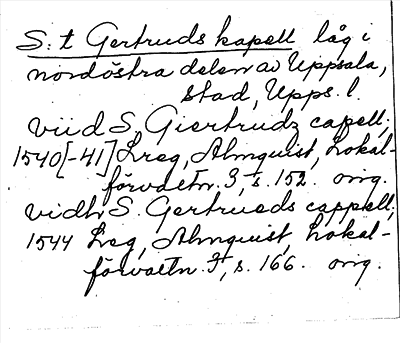 S:t Gertruds kapell låg i
nordöstra delen av Uppsala,
stad, Upps. l.
viid S. Giertrudz capell,
1540[-41] Lreg, Almquist, Lokal-
förvaltn. 3, s. 152. orig.
vidh S. Gertrueds cappell;
1544 Lreg, Almquist, Lokal-
förvaltn. 3, s. 166. orig.